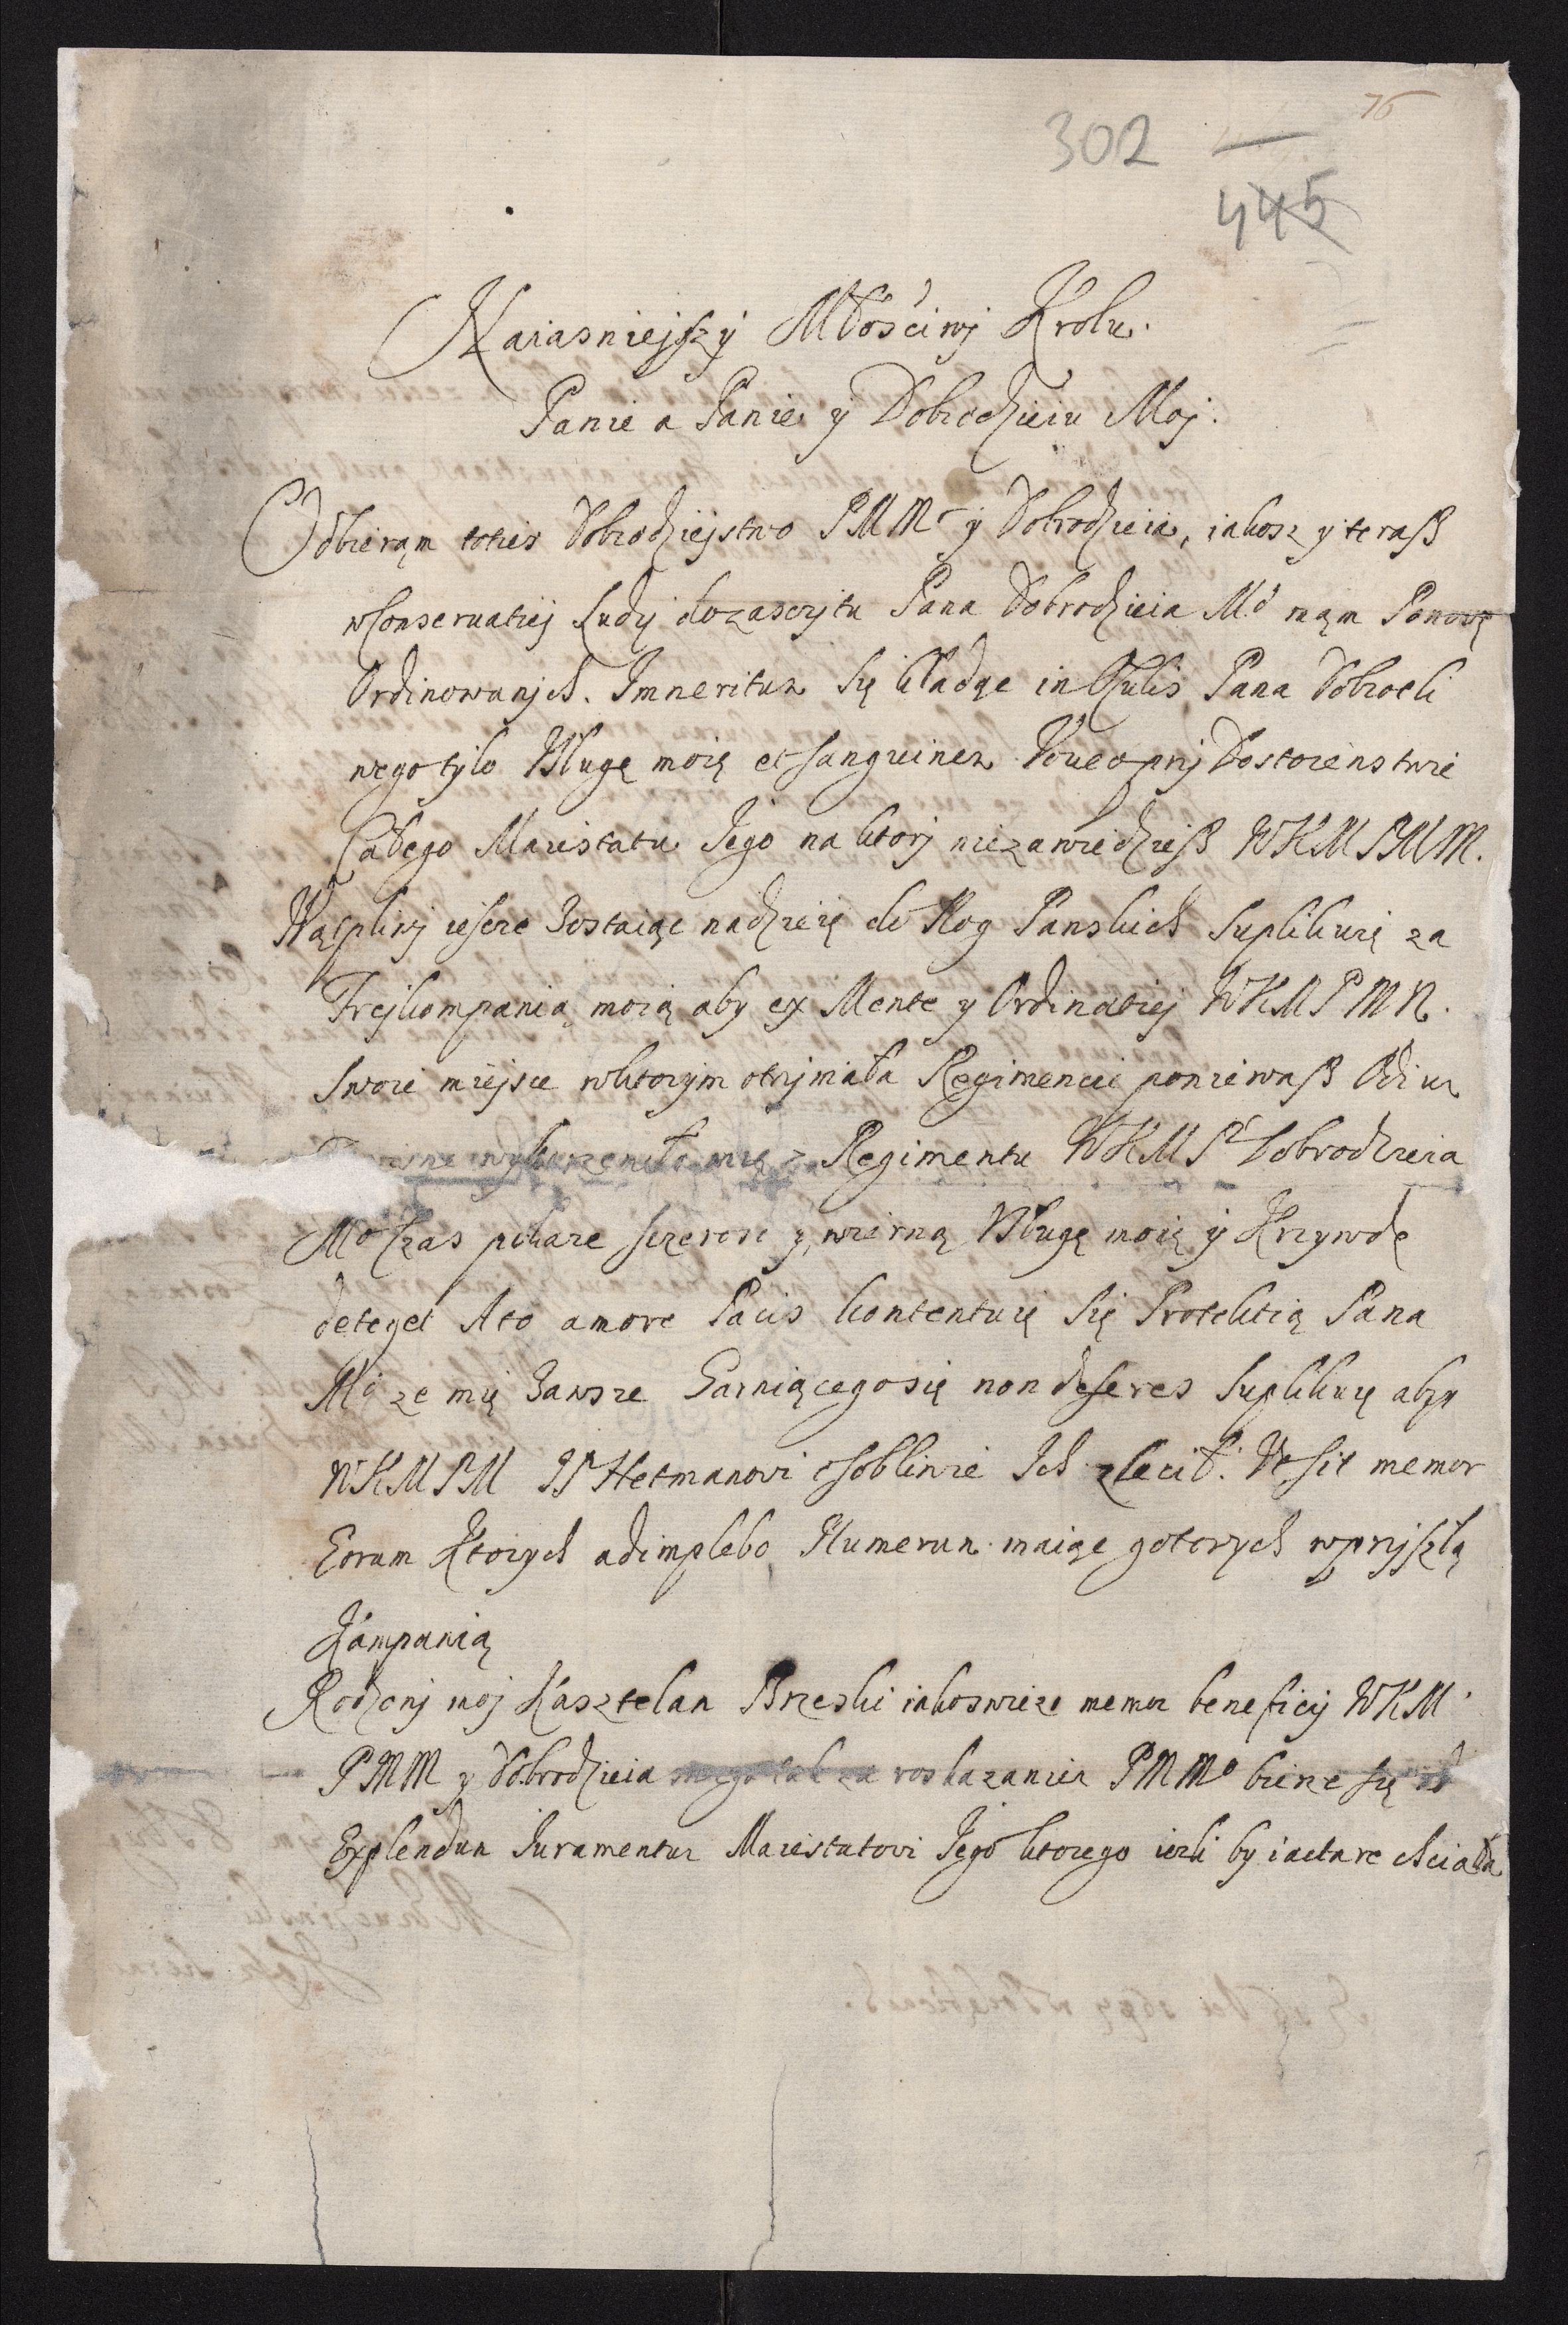 76
302
445
Naiasniejszÿ Młosciwj Krolu.
Panie a Panie ÿ Dobrodzieiu Moj.
Odbierąm toties Dobrodziejstwo PMMo ÿ Dobrodzieia, iakosz ÿ terasß
wConseruatiej Ludzj do zasczjtu Pana Dobrodzieia Mo mąm
Ordinowanjch. Immeritum Się kładąc in Pana
nego tylo Vsługę moię et sanguinem Voueo prj Dostoienstwie
Całego Maiestatu Jego na ktorj niezawiedzieß WKMPMM.
Wątpliwj iescze Zostaiąc nadzieię do Nog Panskich Suplikuię za
Frejkompanią moią aby ex Mente y Ordinatiej WKMPMM.
Swoie miejsce wktorym otrjmała Regimencie poniewaß Odium
wykurzeniło mię z Regimentu WKMPa Dobrodzieia
Mo Czas pokaze sczerosc y, wierną Vsługę moię ÿ Krzywdę
deteget Ato amore Pacis kontentuię Się Protektią Pana
Mo ze mię Zawsze Garniącego się non deseres Suplikuię abyś
WKMPM JP Hetmanowi osobliwie Ich zlecił. Vt sit memor
Eorum Ktorych adimplebo Numerum maiąc gotowych wprzjszłą
Kampanią
Rodzonj moj Kasztelan Brzeski iakoswieże memor beneficij WKM
PMM y Dobrodzieia tak za roskazaniem PMMo bierze się ad
Explendum Iuramentum Maiestatowi Jego ktorego iezli by iactare chciała